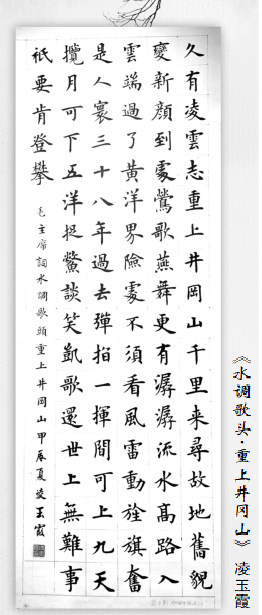 久有凌雲志重上井岡山千里来尋故地舊貌
變新顔到處鶯歌燕舞更有潺潺流水高路入
雲端過了黄洋界險處不須看風雷動旌旗奮
是人寰三十八年過去彈指一揮間可上九天
攬月可下五洋捉鱉談笑凱歌還世上無難事
祇要肯登攀
毛主席詞水調歌頭重上井岡山甲辰夏凌玉霞
《水调歌头·重上井冈山》 凌玉霞